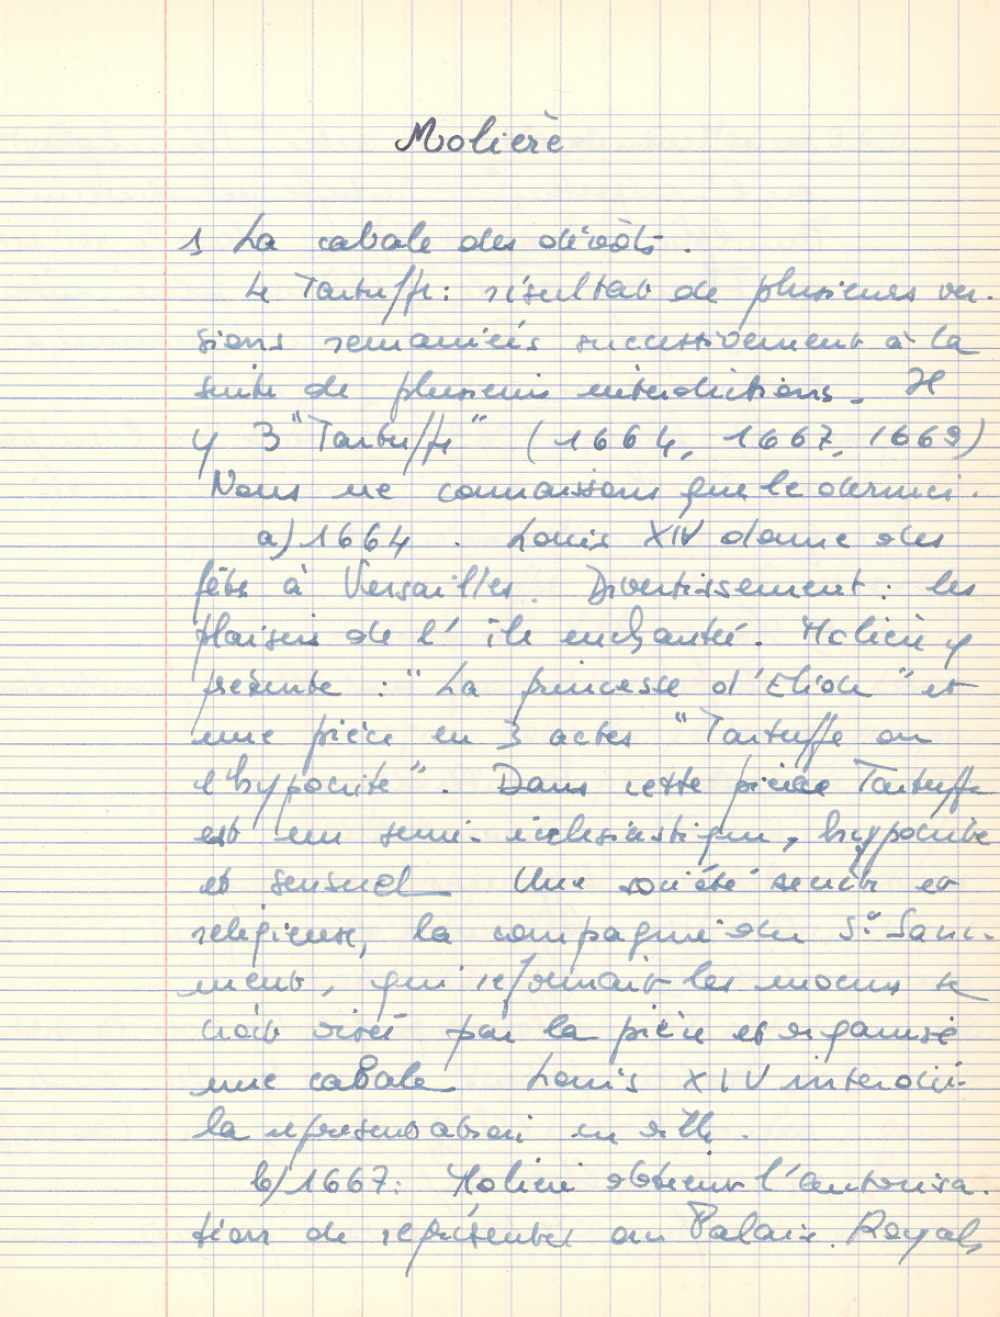 Molière
1 La cabale des dévots.
Le Tartuffe: résultat de plusieurs ver-
sions remaniées successivement à la
suite de plusieurs interdictions. Il
y 3 "Tartuffe" (1664, 1667, 1669)
Nous ne connaissons que le dernier.
a) 1664. Louis XIV donne des
fêtes à Versailles. Divertissement: les
plaisirs de l'île enchantée. Molière y
présente: "La princesse d'Elide" et
une pièce en 3 actes "Tartuffe ou
l'hypocrite". Dans cette pièce Tartuffe
est un semi-ecclésiastique, hypocrite
et sensuel. Une société secrète et
religieuse, la compagnie du St Sacre-
ment, qui réformait les moeurs se
croit visée par la pièce et organise
une cabale. Louis XIV interdit
la représentation en ville.
b) 1667: Molière obtient l'autorisa-
tion de représenter au Palais-Royal,